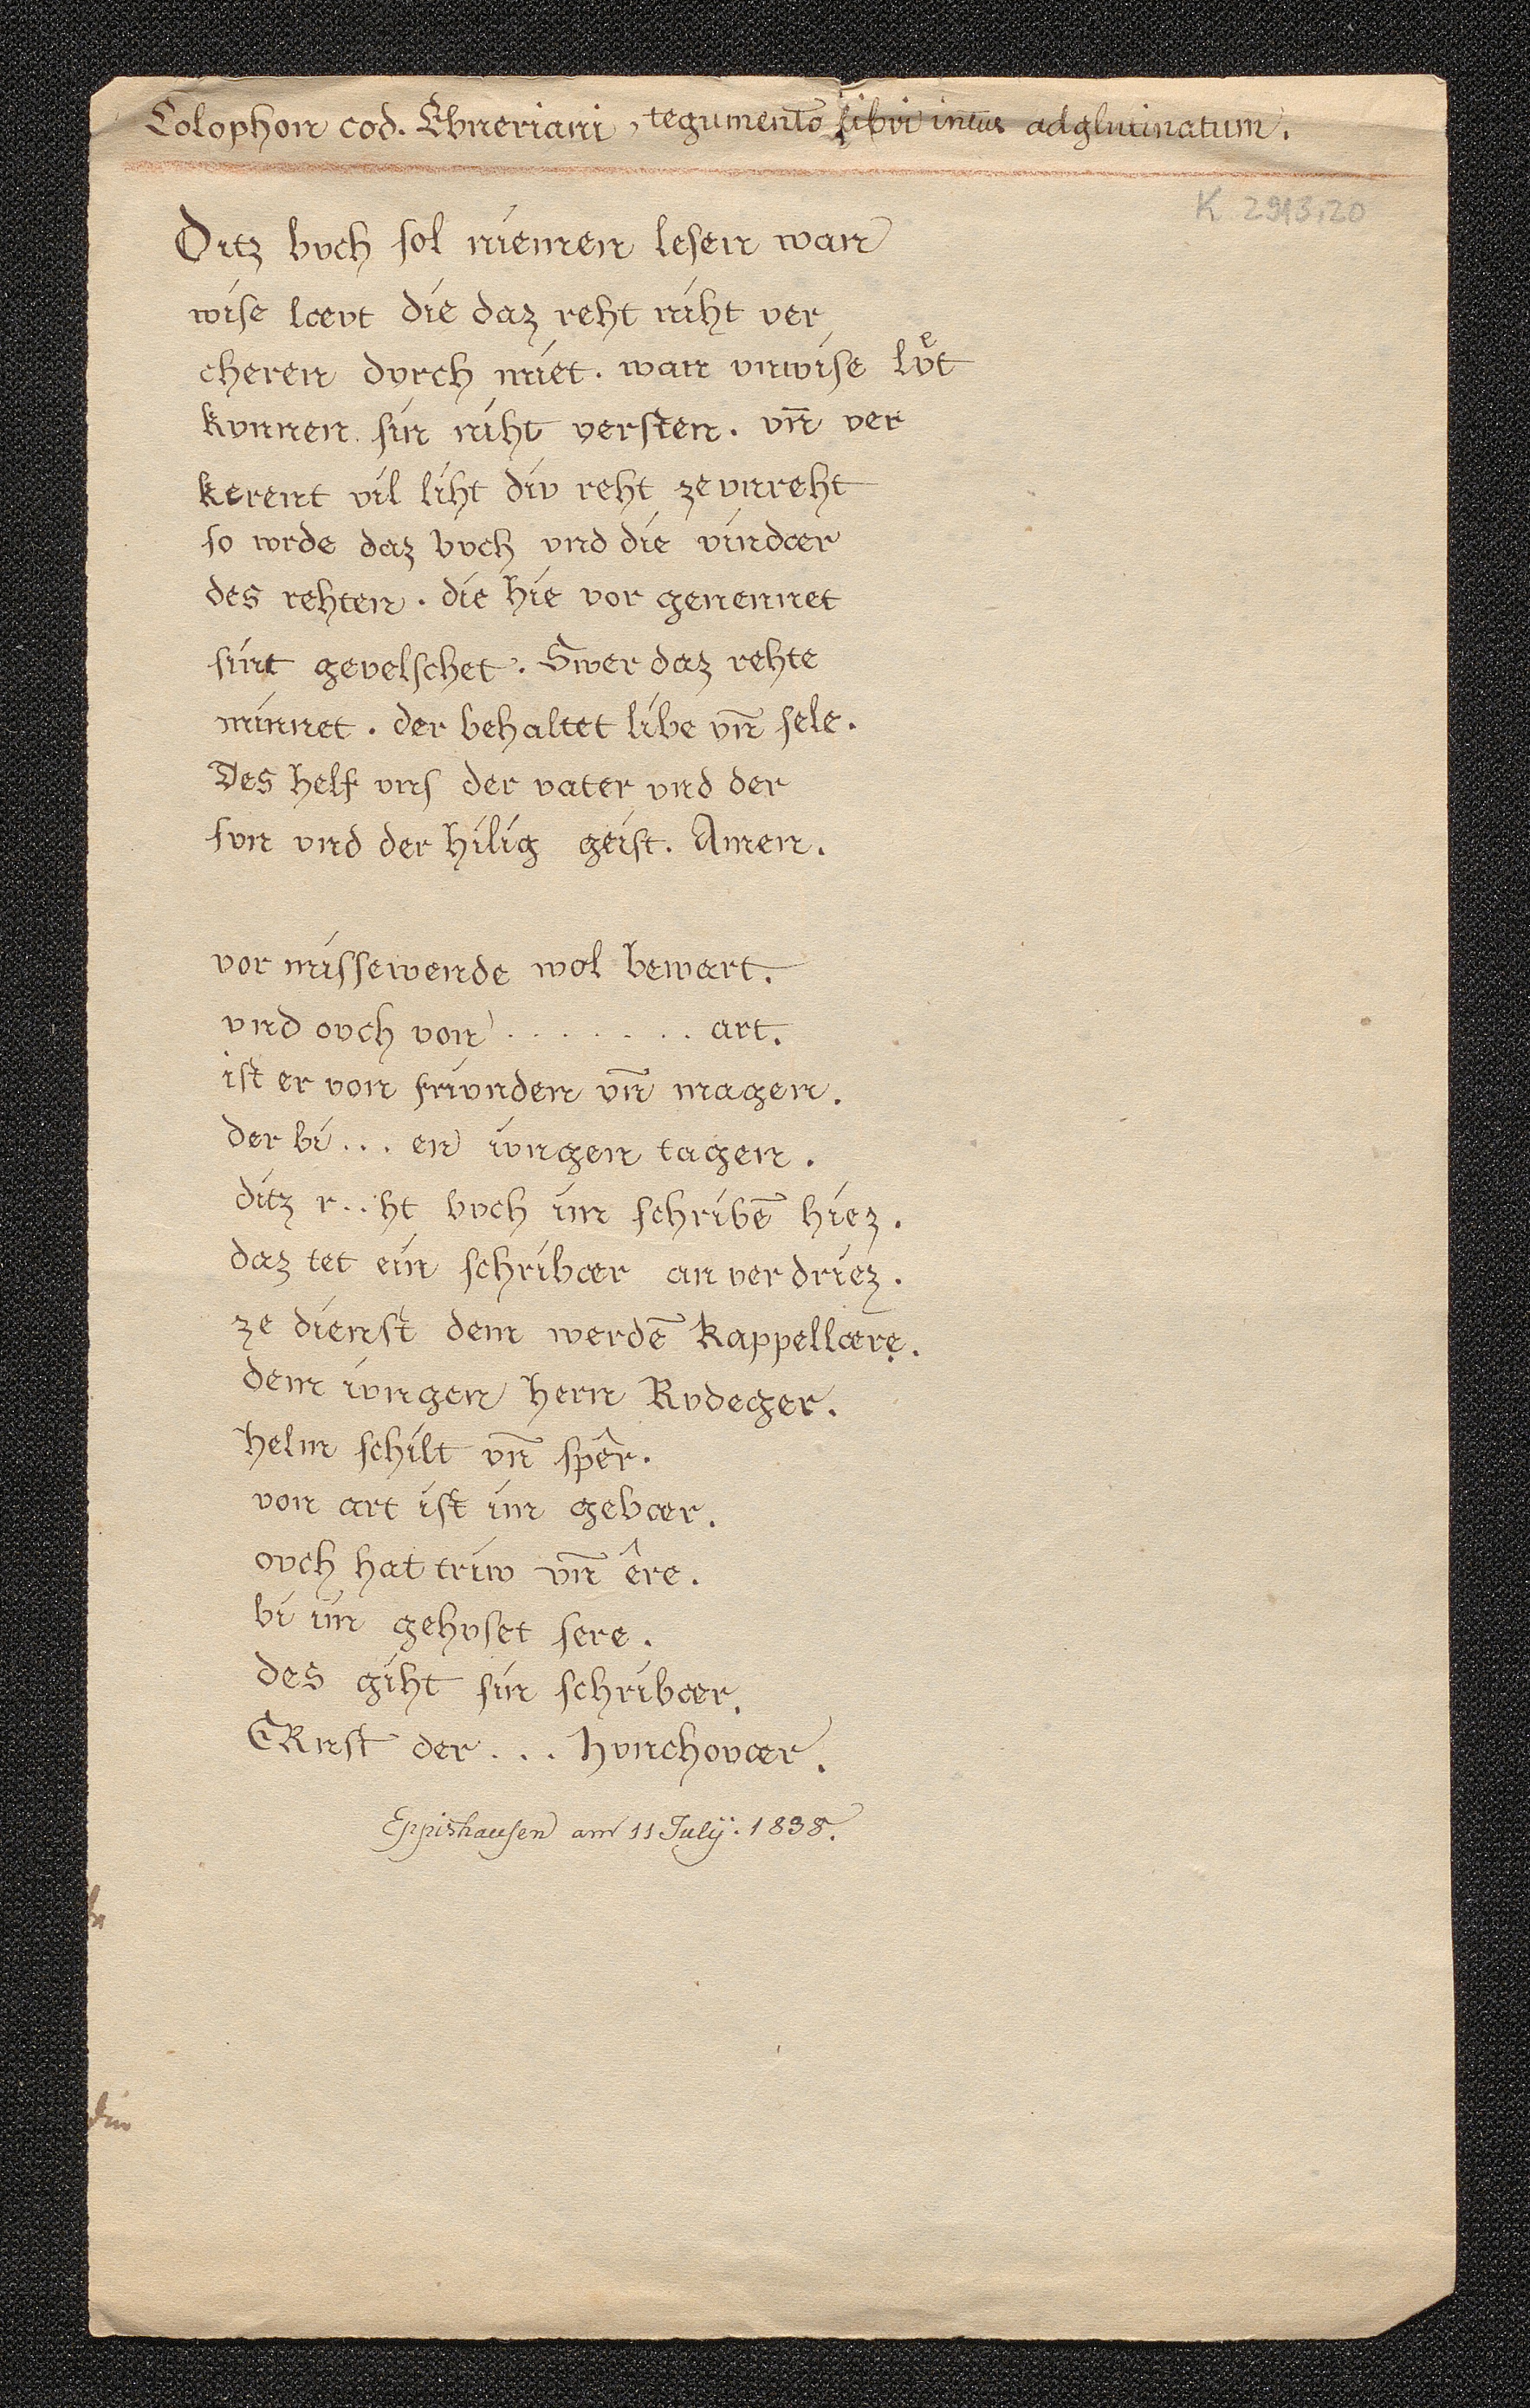 Colophon cod. Ebneriani, tegumento libri intus adglutinatum.
K 2913,20
Ditz bvch sol niemen lesen wan
wise lævt die daz reht niht ver
cheren dvrch miet. wan vnwise lvͤt
kvnnen sin niht versten. vn̄ ver
kerent vil liht div reht ze vnreht
so wrde daz bvch vnd die vindær
des rehten. die hie vor genennet
sint gevelschet. Swer daz rehte
minnet. der behaltet libe vn̄ sele.
Des helf vns der vater vnd der
svn vnd der hilig geist. Amen.
vor missewende wol bewart.
vnd ovch von ........ art.
ist er von frivnden vn̄ magen.
der bi ... en ivngen tagen.
ditz r..ht bvch im schribē hiez.
daz tet ein schribær an verdriez.
ze dienst dem werdē kappellære.
dem ivngen hern Rvdeger.
helm schilt vn̄ spêr.
von art ist im gebær.
ovch hat triw vn̄ êre.
bi im gehvset sere.
des giht sin schribær.
ERnst der ... hvnchovær.
Eppishausen am 11 Julÿ. 1838.
div